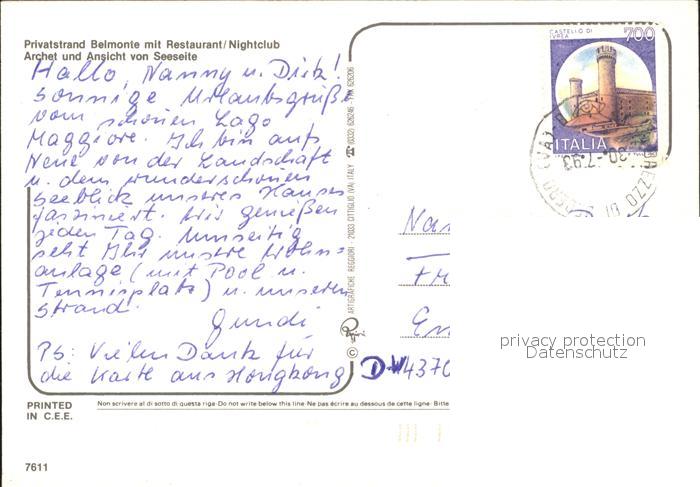 Privatstrand Belmonte mit Restaurant/Nightclub
Archet und Ansicht von Seeseite
Hallo, Nanny u. Dirk!
Sonnige Urlaubsgrüße
vom schönen Lago
Maggiore. Ich bin aufs
Neue von der Landschaft
u. dem wunderschönen
Seeblick unseres Hauses
fasziniert. Wir genießen
jeden Tag. Umseitig
seht Ihr unsere Wohn=
anlage (mit Pool u.
Tennisplatz) u. unseren
Strand.
Gundi
PS: Vielen Dank für
die Karte aus Hongkong
PRINTED
IN C.E.E.
Non scrivere al di sotto di questa riga-Do not write below this line-Ne pas écrire au dessous de cette ligne-Bitte
7611
ARTIGRAFICHE REGGIORI - 21033 CITTIGLIO (VA) ITALY
©
CASTELLO DI
IVREA
700
ITALIA
30.-7.93
D-W4370
privacy protection
Datenschutz